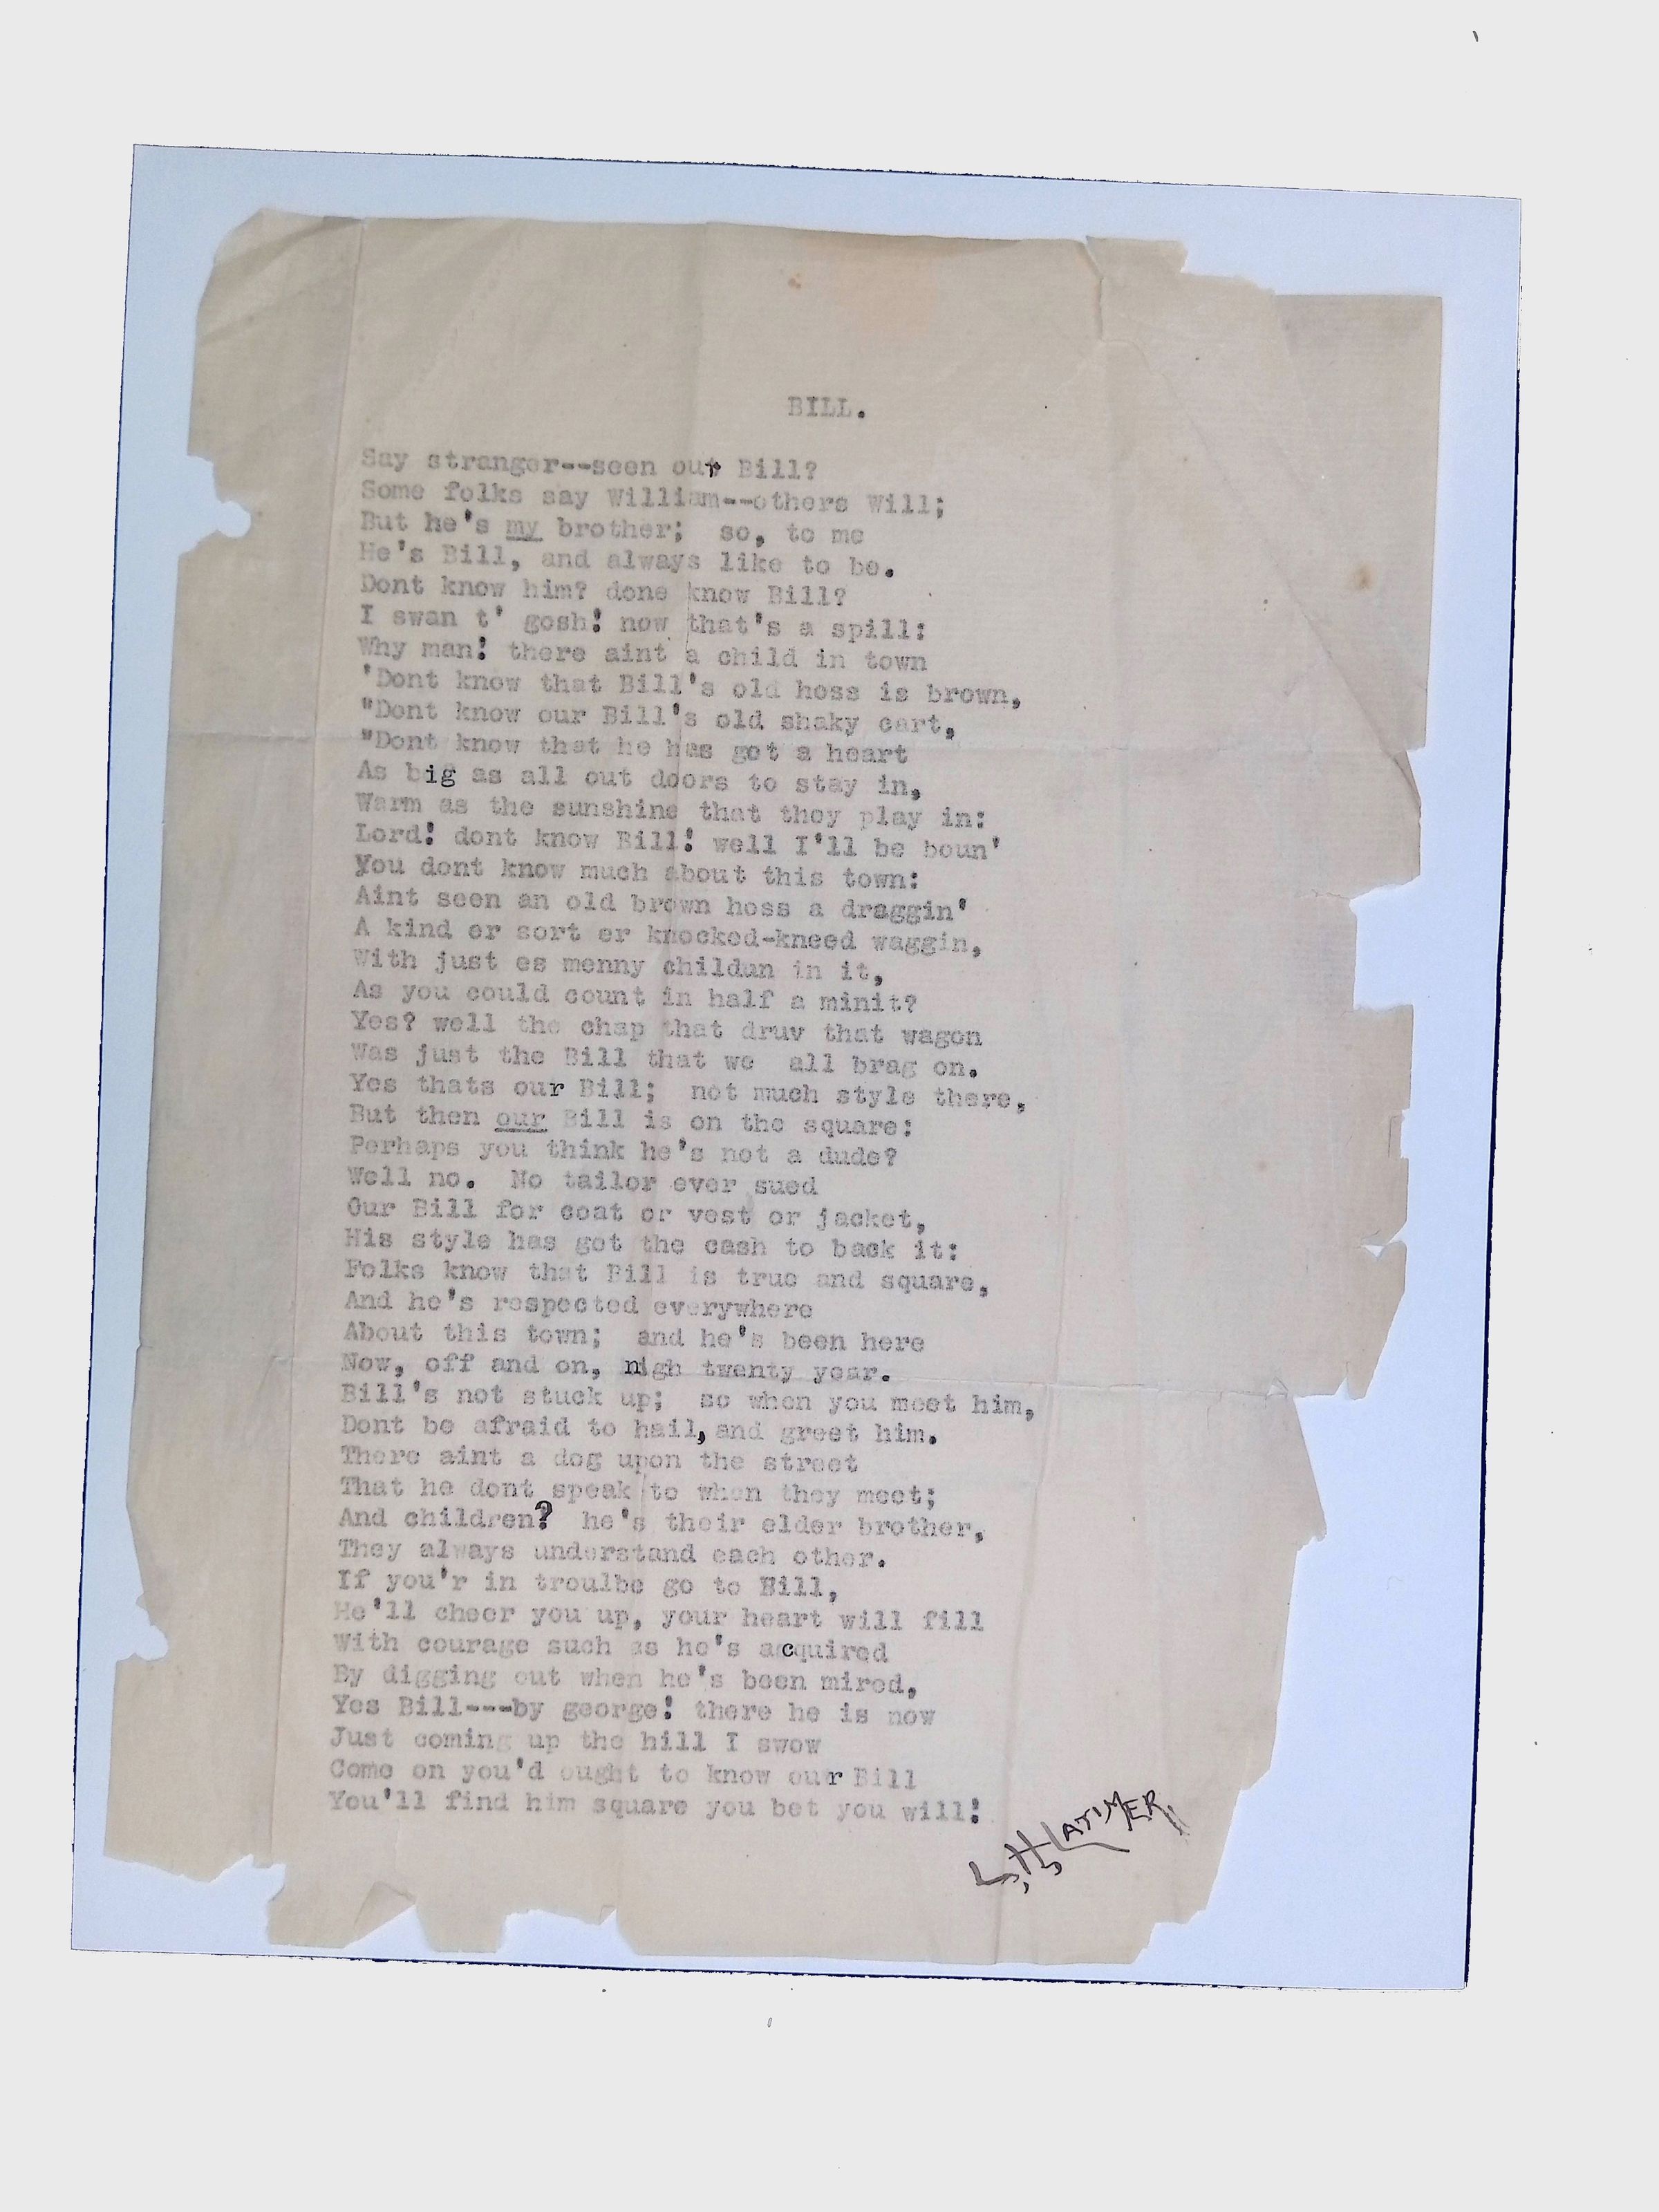 BILL.
Say stranger--seen our Bill?
Some folks say William--others Will;
But he's my brother;  so, to me
He's Bill, and always like to be.
Dont know him? done know Bill?
I swan t' gosh! now that's a spill:
Why man! there aint a child in town
'Dont know that Bill's old hoss is brown,
"Dont know our Bill's old shaky cart,
"Dont know that he has got a heart
As big as all out doors to stay in,
Warm as the sunshine that they play in:
Lord! dont know Bill! well I'll be boun'
You dont know much about this town:
Aint seen an old brown hoss a draggin'
A kind er sort er knocked-kneed waggin,
With just es menny childun in it,
As you could count in half a minit?
Yes? well the chap that druv that wagon
Was just the Bill that we  all brag on.
Yes thats our Bill;  not much style there,
But then our Bill is on the square:
Perhaps you think he's not a dude?
Well no.  No tailor ever sued
Our Bill for coat or vest or jacket,
His style has got the cash to back it:
Folks know that Bill is true and square,
And he's respected everywhere
About this town;  and he's been here
Now, off and on, nigh twenty year.
Bill's not stuck up;  so when you meet him,
Dont be afraid to hail, and greet him.
There aint a dog upon the street
That he dont speak to when they meet;
And children?  he's their elder brother,
They always understand each other.
If you'r in troulbe go to Bill,
He'll cheer you up, your heart will fill
With courage such as he's acquired
By digging out when he's been mired,
Yes Bill---by george! there he is now
Just coming up the hill I swow
Come on you'd ought to know our Bill
You'll find him square you bet you will!
LATIMER